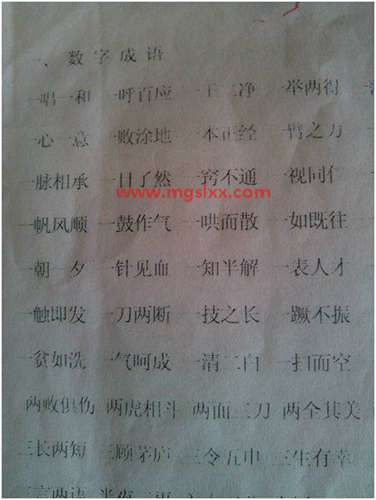 一、数字成语
一唱一和 一呼百应 一干二净 一举两得
一心一意 一败涂地 一本正经 一臂之力
一脉相承 一目了然 一窍不通 一视同仁
www.mgslxx.com
一帆风顺 一鼓作气 一哄而散 一如既往
一朝一夕 一针见血 一知半解 一表人才
一触即发 一刀两断 一技之长 一蹶不振
一贫如洗 一气呵成 一清二白 一扫而空
两败俱伤 两虎相斗 两面三刀 两全其美
三长两短 三顾茅庐 三令五申 三生有幸
三言两语